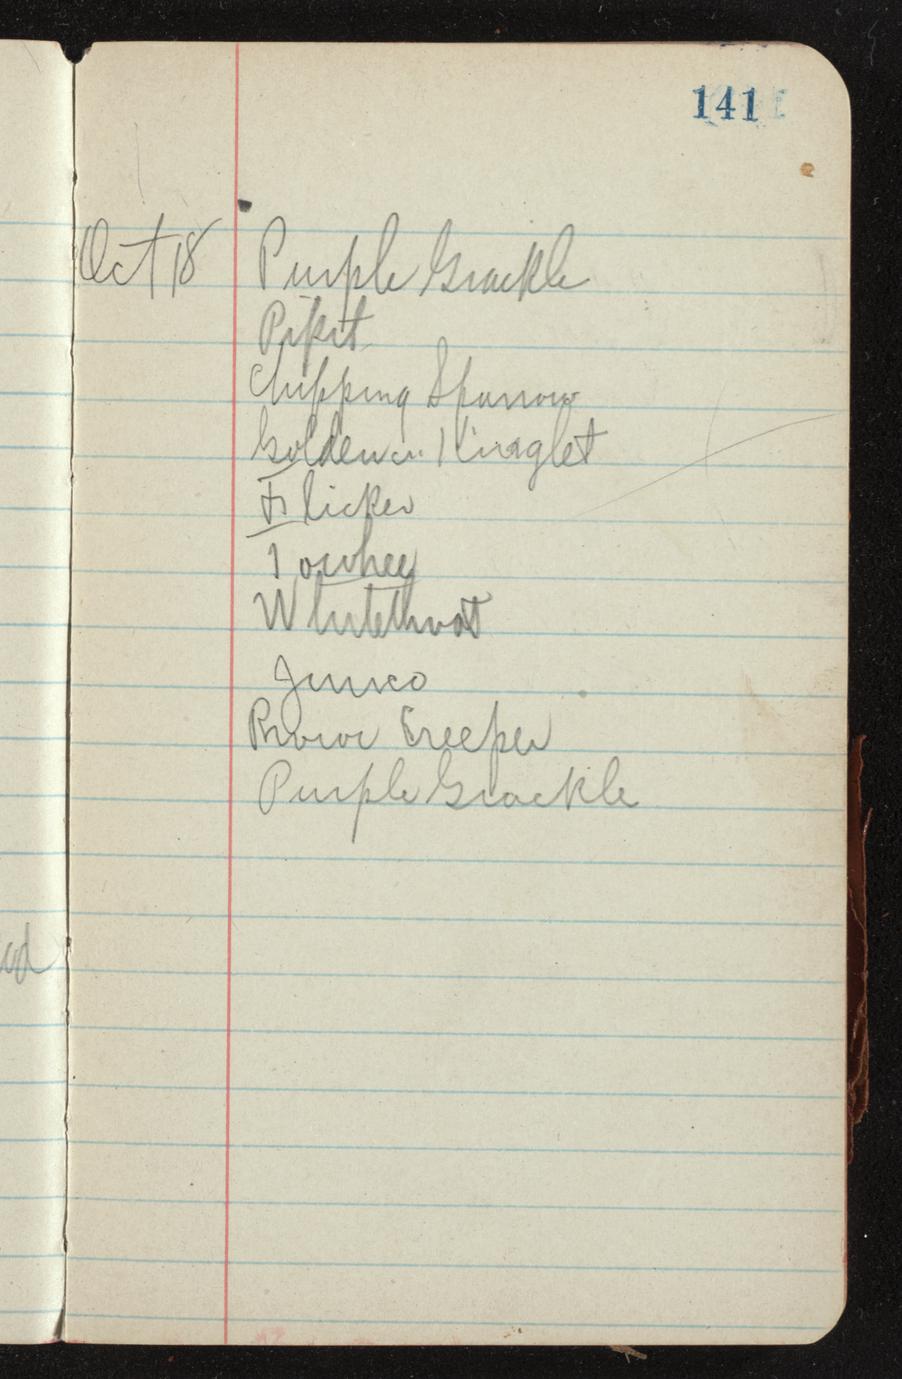 141
Oct 18 Purple Grackle
Pipit
Chipping Sparrow
Golden cr. Kinglet
Flicker
Towhee
Whitethroat
Junco
Brown Creeper
Purple Grackle